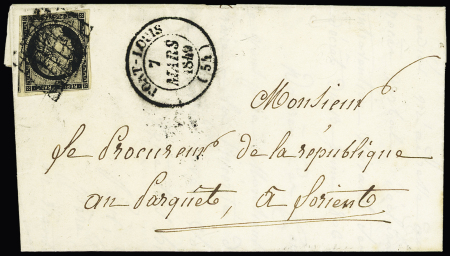 PORT-LOUIS
7
MARS
1849
(54)
Monsieur
le Procureur de la république
au Parquet, à Lorient